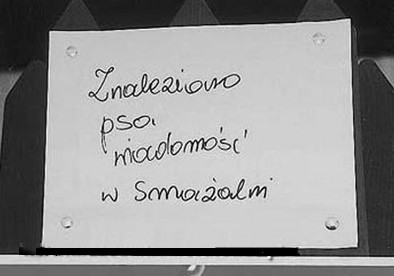 Znaleziono
psa.
wiadomość
w Smażalni